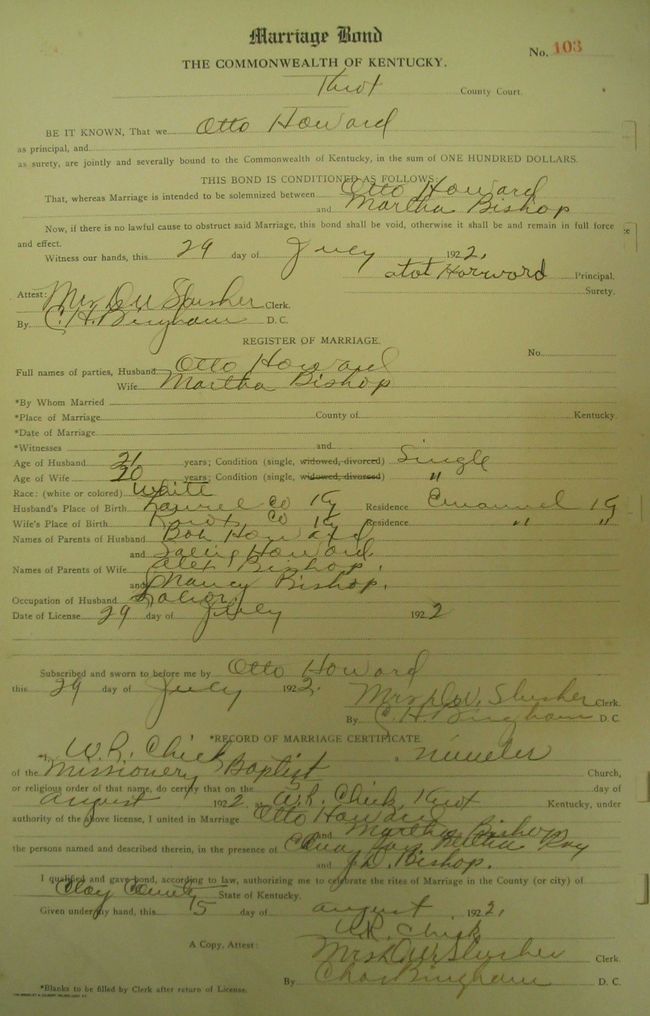 Marriage Bond
No. 103
THE COMMONWEALTH OF KENTUCKY.
Knox County Court.
BE IT KNOWN, That we Otto Howard
as principal, and
as surety, are jointly and severally bound to the Commonwealth of Kentucky, in the sum of ONE HUNDRED DOLLARS.
THIS BOND IS CONDITIONED AS FOLLOWS:
That, whereas Marriage is intended to be solemnized between Otto Howard
and Martha Bishop
Now, if there is no lawful cause to obstruct said Marriage, this bond shall be void, otherwise it shall be and remain in full force
and effect.
Witness our hands, this 29 day of July 1922.
Howard Principal.
Surety.
Attest: Mrs D W Slusher Clerk.
By C. H. Bingham D. C.
REGISTER OF MARRIAGE.
No.
Full names of parties, Husband Otto Howard
Wife Martha Bishop
*By Whom Married
*Place of Marriage County of Kentucky.
*Date of Marriage
*Witnesses and
Age of Husband 21 years; Condition (single, widowed, divorced) Single
Age of Wife 20 years; Condition (single, widowed, divorced) "
Race: (white or colored) White
Husband's Place of Birth Laurel Co Ky Residence Emanuel Ky
Wife's Place of Birth Knox Co Ky Residence " "
Names of Parents of Husband Bob Howard
and Howard
Names of Parents of Wife Alex Bishop.
and Nancy Bishop.
Occupation of Husband Labor
Date of License 29 day of July 1922
Subscribed and sworn to before me by Otto Howard
this 29 day of July 1922. Mrs D. W. Slusher Clerk.
By C. H. Bingham D. C.
*RECORD OF MARRIAGE CERTIFICATE.
*I, W. R. Chick
of the Missionery Baptist Church,
or religious order of that name, do certify that on the day of
August 1922 at W. R. Chick Knox Kentucky, under
authority of the above license, I united in Marriage Otto Howard
and Martha Bishop
the persons named and described therein, in the presence of
and J. D. Bishop.
I qualified and gave bond, according to law, authorizing me to celebrate the rites of Marriage in the County (or city) of
Clay County State of Kentucky.
Given under my hand, this 5 day of August 1922.
W. R. Chick
A Copy, Attest: Mrs D. W. Slusher Clerk.
By Chas Bingham D. C.
*Blanks to be filled by Clerk after return of License.